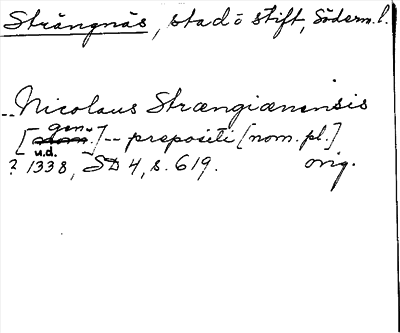 Strängnäs, stad o stift, Söderm. l.
-- Nicolaus Strængianensis
[gen.] -- prepositi [nom. pl.]
u.d.
? 1338, SD 4, s. 619. orig.